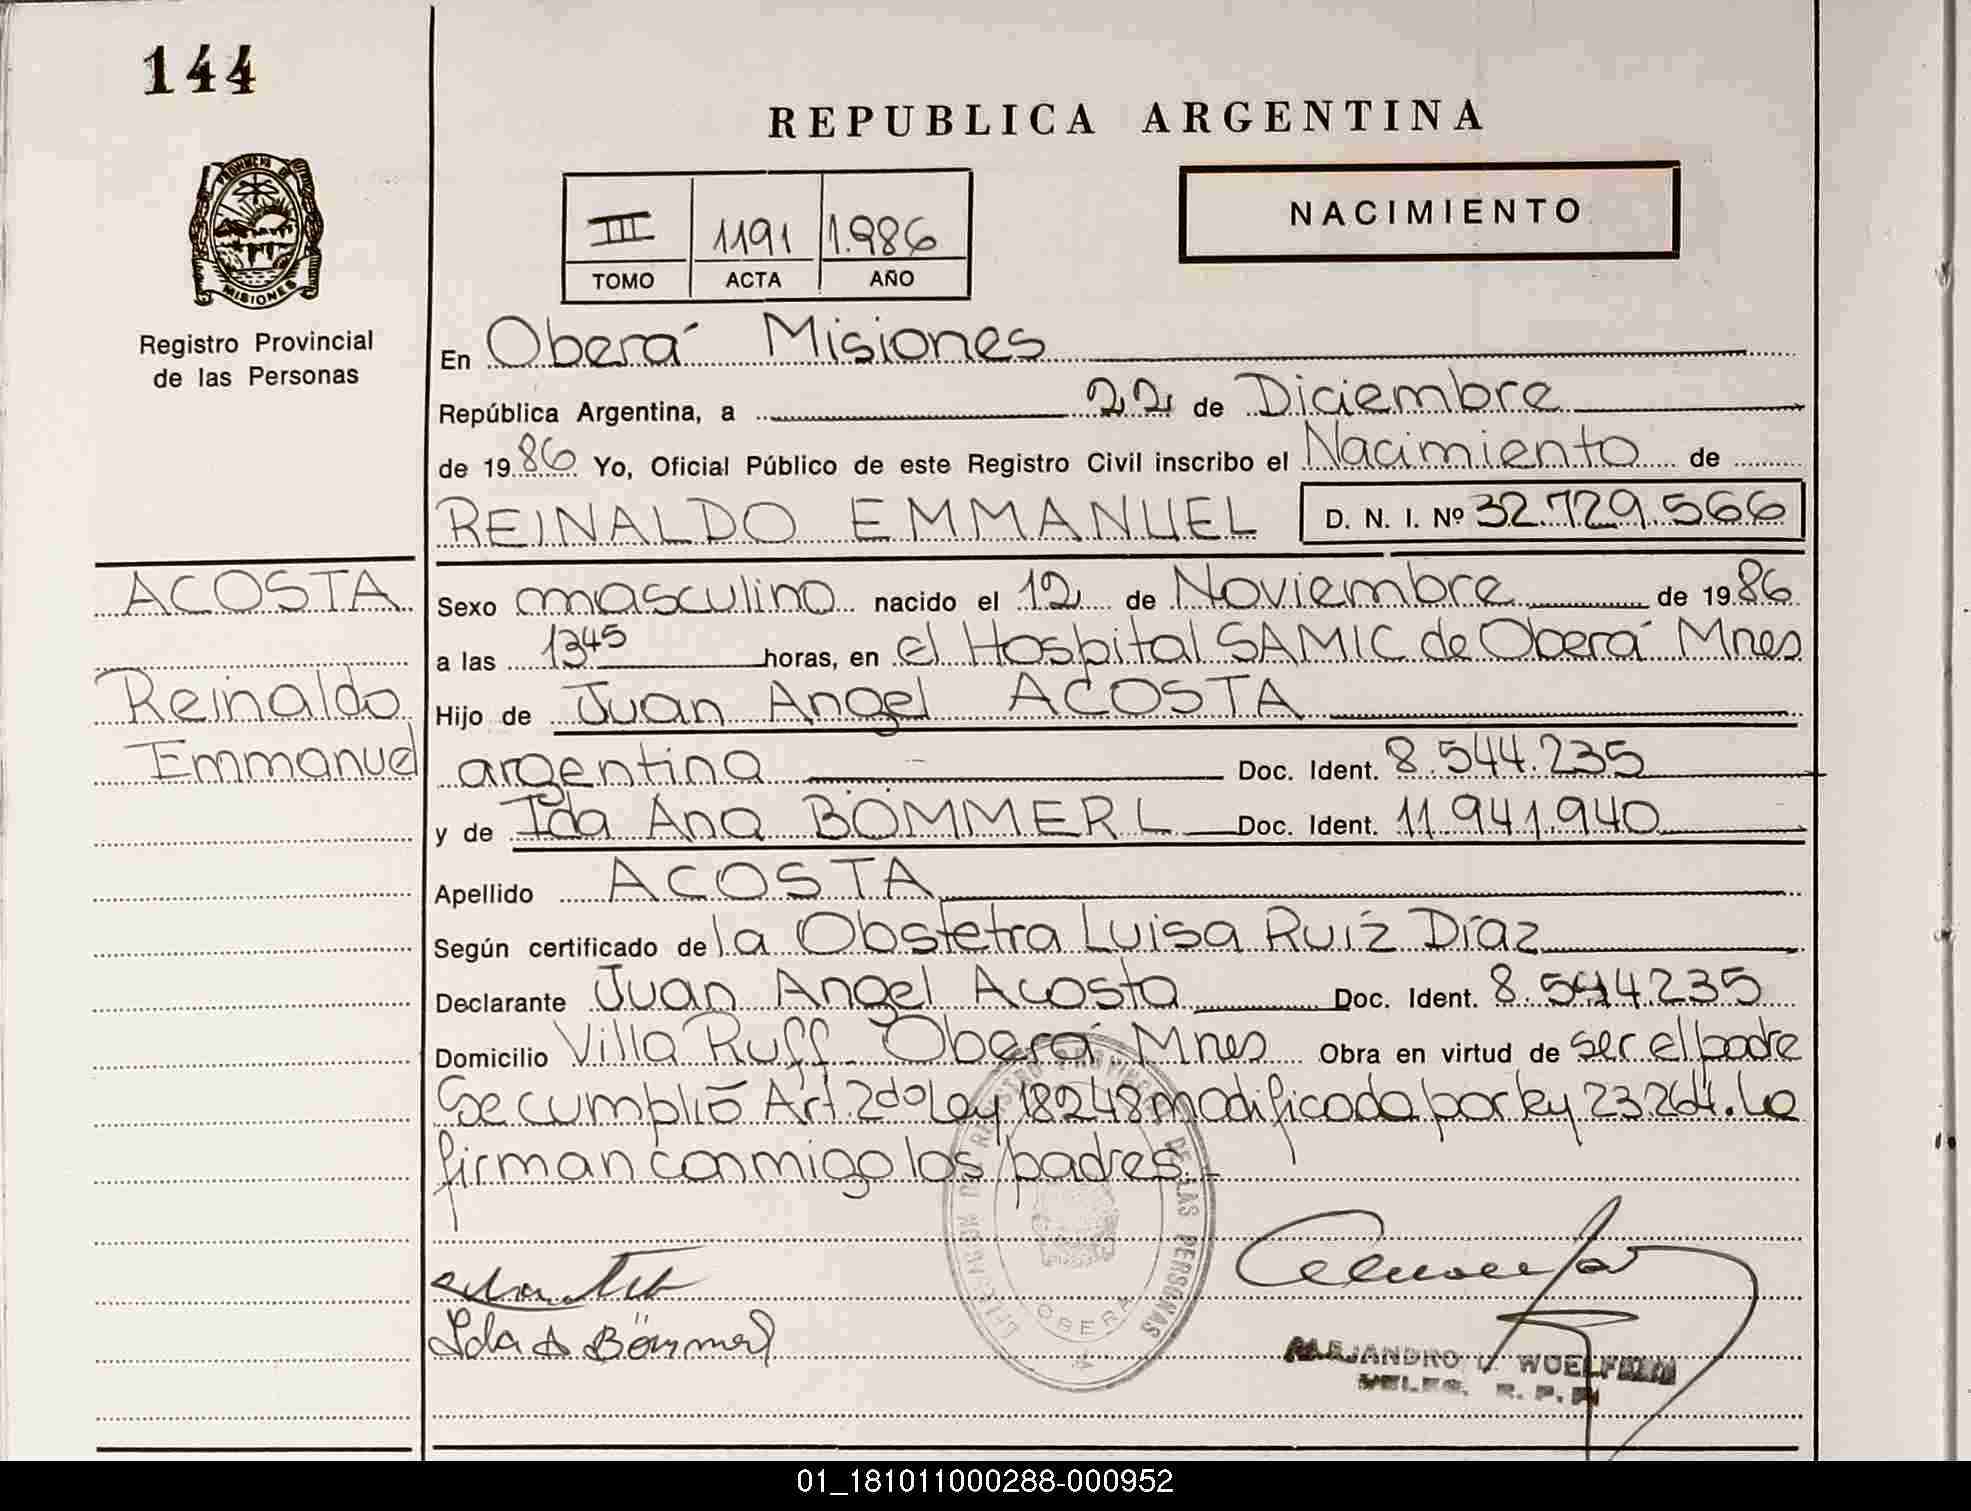 144
REPUBLICA ARGENTINA
NACIMIENTO
III 1191 1.986
TOMO ACTA AÑO
PROVINCIA DE MISIONES
Registro Provincial
de las Personas
En Oberá Misiones
República Argentina, a 22 de Diciembre
de 1986 Yo, Oficial Público de este Registro Civil inscribo el Nacimiento de
REINALDO EMMANUEL D. N. I. Nº 32.729.566
ACOSTA
Reinaldo
Emmanuel
Sexo masculino nacido el 12 de Noviembre de 1986
a las 13 45 horas, en el Hospital SAMIC de Oberá Mnes
Hijo de Juan Angel ACOSTA
argentina Doc. Ident. 8.544.235
y de Ida Ana BÖMMERL Doc. Ident. 11.941.940
Apellido ACOSTA
Según certificado de la Obstetra Luisa Ruíz Díaz
Declarante Juan Angel Acosta Doc. Ident. 8.544.235
Domicilio Villa Ruff Oberá Mnes Obra en virtud de ser el padre
Se cumplió Art. 2do Ley 18248 modificada por ley 23.264. Lo
firman conmigo los padres.-
REGISTRO PROVINCIAL DE LAS PERSONAS
OBERA
Ida A Bömmerl
ALEJANDRO
R. P. P.
01_181011000288-000952